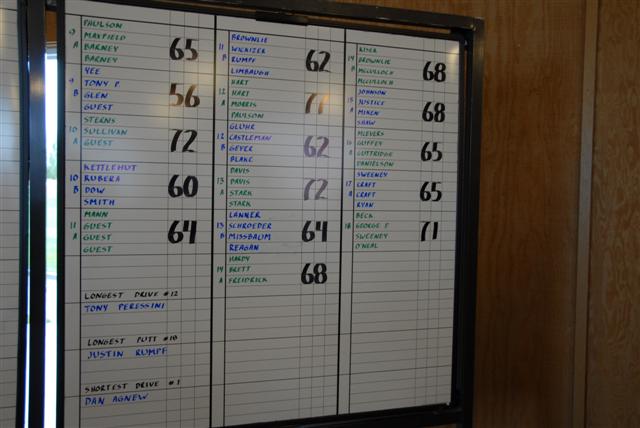 PAULSON
9 MAYFIELD
A BARNEY 65
BARNEY
YEE
9 TONY P
B GLEN 56
GUEST
STERNS
10 SULLIVAN 72
A GUEST
KETTLEHUT
10 RUBERA 60
B DOW
SMITH
MANN
11 GUEST 64
A GUEST
GUEST
LONGEST DRIVE #12
TONY PERESSINI
LONGEST PUTT #10
JUSTIN RUMPF
SHORTEST DRIVE #1
DAN AGNEW
BROWNLIE
11 WICKIZER 62
B RUMPF
LIMBAUGH
HART
12 HART 77
A MORRIS
PAULSON
GLUHR
12 CASTLEMAN 62
B GEYER
BLAKE
DAVIS
13 DAVIS 72
A STARK
STARK
LANNER
13 SCHROEDER 64
B MISSBAUM
REAGAN
HARDY
14 BRETT 68
A FREIDRICK
KISER
14 BROWNLIE 68
B MCCULLOCH
MCCULLOCH
JOHNSON
15 JUSTICE 68
A MIKEN
SHAW
MIEVERS
16 GUFFEY 65
A GUTTRIDGE
DANIELSON
SWEENEY
17 CRAFT 65
A CRAFT
RYAN
BECK
18 GEORGE F 71
SWEENEY
O'NEAL